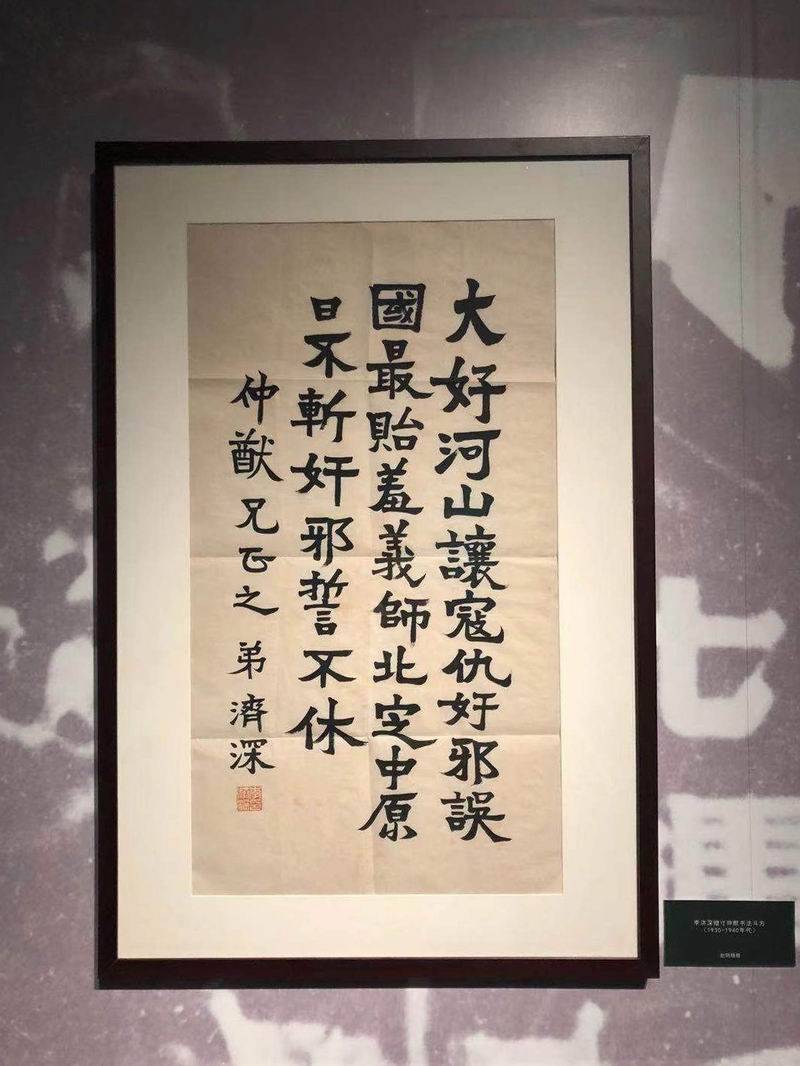 大好河山讓寇仇奸邪誤
國最貽羞義師北定中原
日不斬奸邪誓不休
仲猷兄正之 弟濟深
李济深赠寸仲猷书法斗方
（1930-1940年代）